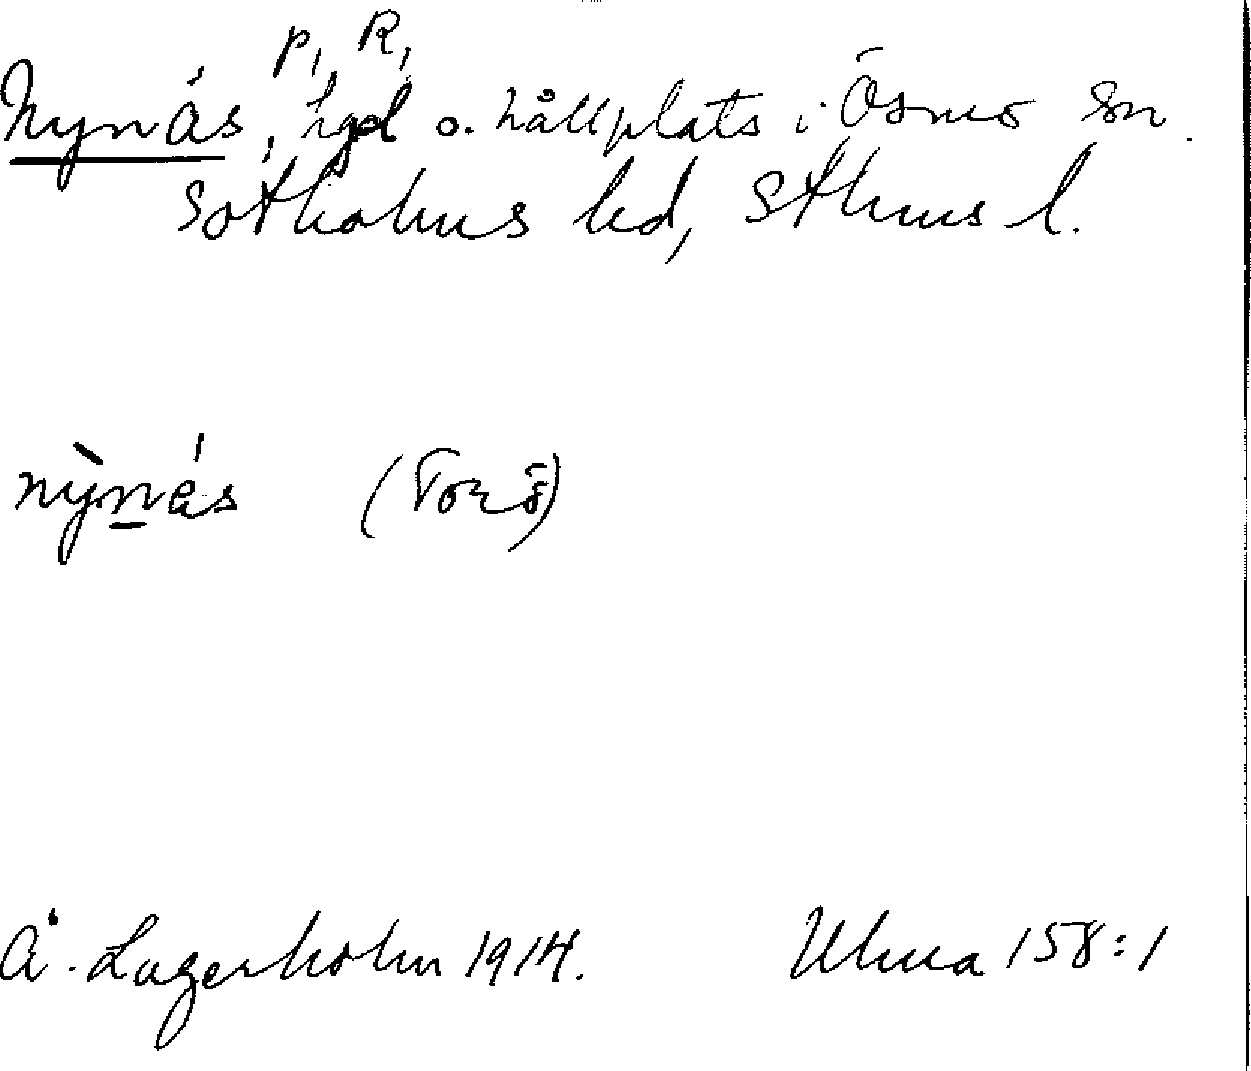 P, R,
Nynäs, hgd o. hållplats i Ösmo sn.
Sotholms hd, Sthms l.
nỳnés (Torö)
Å. Lagerholm 1914. Ulma 158:1